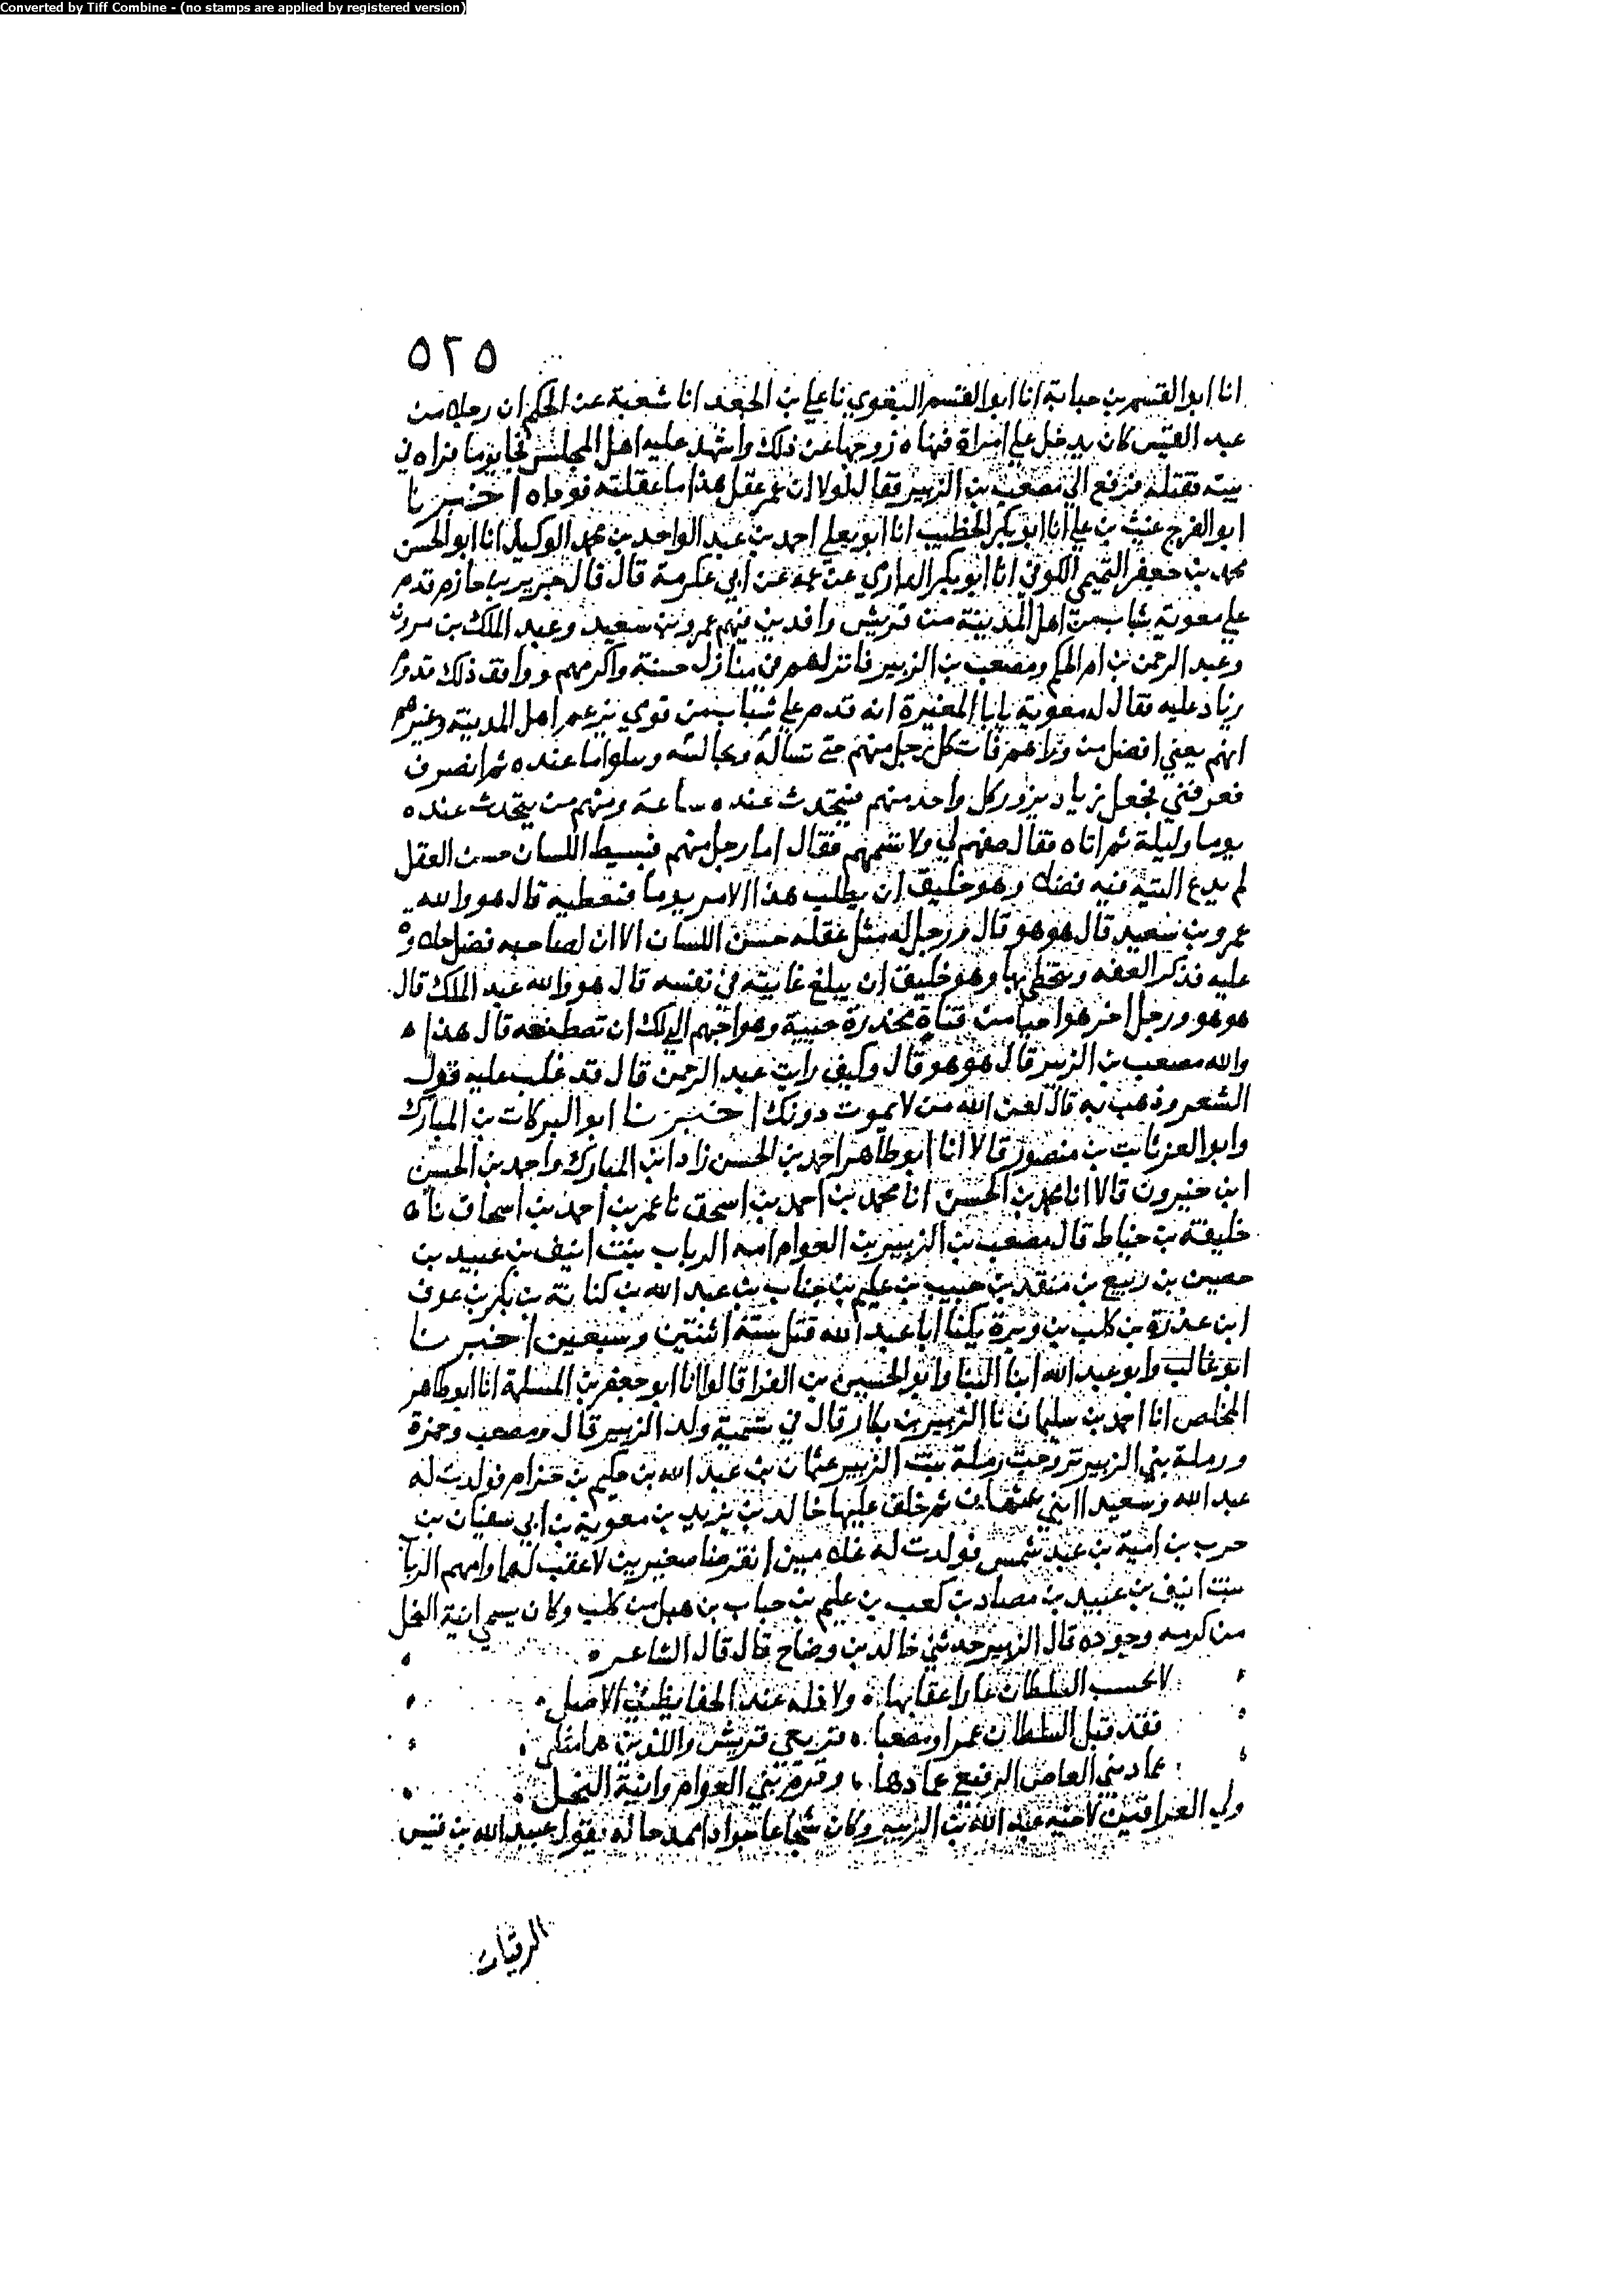 Converted by Tiff Combine - (no stamps are applied by registered version)
٥٢٥
انا ابو القسم بن حبابة انا ابو القسم البغوي نا علي بن الجعد انا شعبة عن الحكم ان رجلا من
عبد القيس كان يدخل علي امراة فنهاه زوجها عن ذلك واشهد عليه اهل المجلس فجا يوما فراه في
بيته فقتله فرفع الي مصعب بن الزبير فقال لولا ان عمر عقل هذا ما عقلته فوداه اخبرنا
ابو الفرج غيث بن علي انا ابو بكر الخطيب انا ابو يعلي احمد بن عبد الواحد بن محمد الوكيل انا ابو الحسن
محمد بن جعفر التميمي الكوفي انا ابو بكر الداري عن عمه عن ابي عكرمة قال قال جرير بن حازم قدم
علي معوية شباب من اهل المدينة من قريش وافدين فيهم عمرو بن سعيد وعبد الملك بن مروان
وعبد الرحمن بن ام الحكم ومصعب بن الزبير فانزلهم في منازل حسنة واكرمهم ووافق ذلك قدوم
زياد عليه فقال له معوية يابا المغيرة انه قدم علي شباب من قومي يزعم اهل المدينة وغيرهم
انهم يعني افضل من وراهم فات كل رجل منهم حتي تساله وتجالسه وسلوا ما عنده ثم انصرف
فعرفني فجعل زياد يزور كل واحد منهم فيتحدث عنده ساعة ومنهم من يتحدث عنده
يوما وليلة ثم اتاه فقال صفهم لي ولا تسمهم فقال اما رجل منهم فبسيط اللسان حسن العقل
لم يدع التيه فيه فضلا وهو خليق ان يطلب هذا الامر يوما فتعطيه قال هو والله
عمرو بن سعيد قال هو هو قال ورجل له مثل عقله حسن اللسان الا ان لصاحبه فضل حلاوة
عليه فذكر العفه وتحظى بها وهو خليق ان يبلغ غايته في نفسه قال هو والله عبد الملك قال
هو هو ورجل اخر هو احيا من فتاة مخدرة حيية وهو احبهم اليك ان تصطنعه قال هذا
والله مصعب بن الزبير قال هو هو قال وكيف رايت عبد الرحمن قال قد غلب عليه قول
الشعر وذهب به قال لعن الله من لا يموت دونك اخبرنا ابو البركات بن المبارك
وابو العز ثابت بن منصور قالا انا ابو طاهر احمد بن الحسن زاد ابن المبارك واحمد بن الحسن
ابن خيرون قالا انا محمد بن الحسن انا محمد بن احمد بن اسحق نا عمر بن احمد بن اسحاق نا
خليفة بن خياط قال مصعب بن الزبير بن العوام امه الرباب بنت انيف بن عبيد بن
حصين بن ربيع بن منقذ بن حبيب بن عليم بن جناب بن عبد الله بن كنانة بن بكر بن عوف
ابن عذرة بن كلب بن وبرة يكنا ابا عبد الله قتل سنة اثنتين وسبعين اخبرنا
ابو غالب وابو عبد الله ابنا البنا وابو الحسين بن الفرا قالوا انا ابو جعفر بن المسلمة انا ابو طاهر
المخلص انا احمد بن سليمان نا الزبير بن بكار قال في تسمية ولد الزبير قال ومصعب وحمزة
ورملة بني الزبير تزوجت رملة بنت الزبير عثمان بن عبد الله بن حكيم بن حزام فولدت له
عبد الله وسعيدا ابني عثمان ثم خلف عليها خالد بن يزيد بن معوية بن ابي سفيان بن
حرب بن امية بن عبد شمس فولدت له غلامين انقرضا صغيرين لا عقب لهما وامهم الربا
بنت انيف بن عبيد بن مصاد بن كعب بن عليم بن جناب بن هبل من كلب وكان يسمي انية النحل
من كرمه وجوده قال الزبير حدثني خالد بن وضاح قال قال الشاعر
لا تحسب السلطان عارا عقابها ولا ذله عند الحفايظ في الاصل
فقد قتل السلطان عمرا ومصعبا قريعي قريش واللذين هما مثلي
عماد بني العاص الرفيع عمادها وقرم بني العوام وانية النحل
ولي العراقين لاخيه عبد الله بن الزبير وكان شجاعا جوادا ممدحا له يقول عبيد الله بن قيس
الرقيات